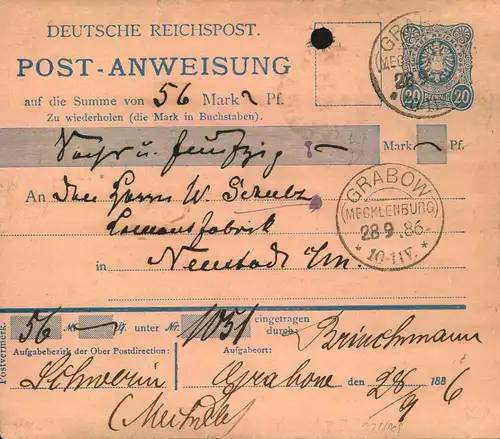 DEUTSCHE REICHSPOST.
POST-ANWEISUNG
auf die Summe von 56 Mark Pf.
Zu wiederholen (die Mark in Buchstaben).
Sechs u. fünfzig Mark Pf.
An den Herrn W. Schultz
in Neustadt i/m.
GRABOW
(MECKLENBURG)
28 9 .86
* 10-11V. *
20 20
Postvermerk.
56 Mk Pf. unter Nr. 1051 eingetragen durch: Brinckmann
Aufgabebezirk der Ober Postdirection: Aufgabeort:
Schwerin Grabow den 28/9 1886
(Mecklb)